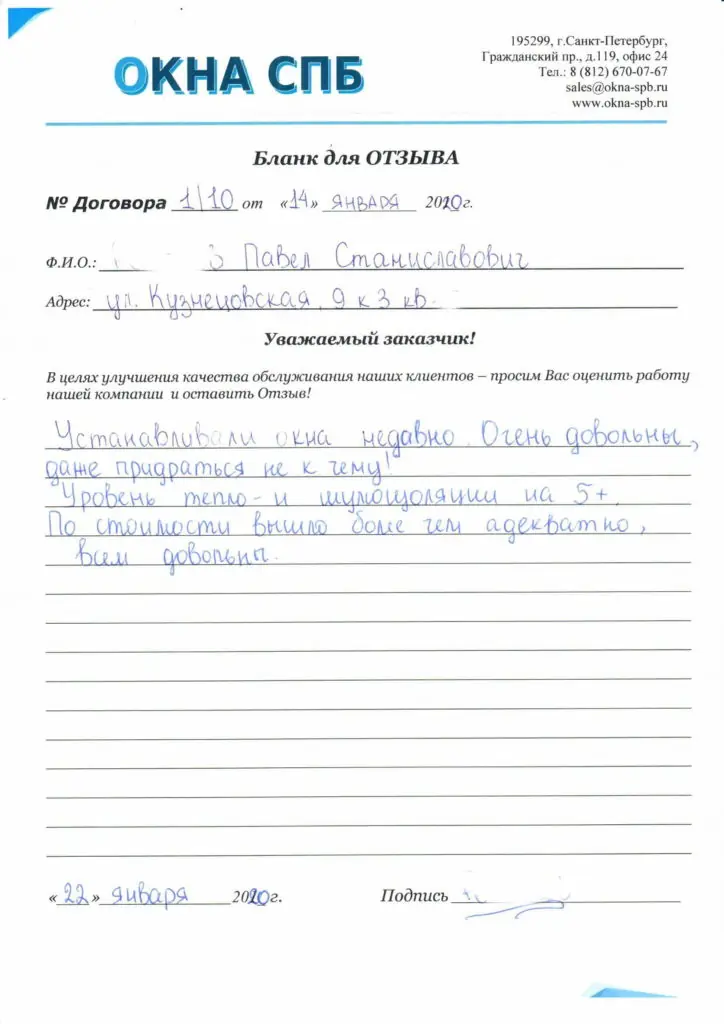 ОКНА СПБ
195299, г.Санкт-Петербург,
Гражданский пр., д.119, офис 24
Тел.: 8 (812) 670-07-67
sales@okna-spb.ru
www.okna-spb.ru
Бланк для ОТЗЫВА
№ Договора 1/10 от «14» января 2020г.
Ф.И.О.: Павел Станиславович
Адрес: ул. Кузнецовская, 9 к 3 кв.
Уважаемый заказчик!
В целях улучшения качества обслуживания наших клиентов – просим Вас оценить работу
нашей компании и оставить Отзыв!
Устанавливали окна недавно. Очень довольны,
даже придраться не к чему!
Уровень тепло- и шумоизоляции на 5+.
По стоимости вышло более чем адекватно,
всем довольны.
«22» января 2020г. Подпись